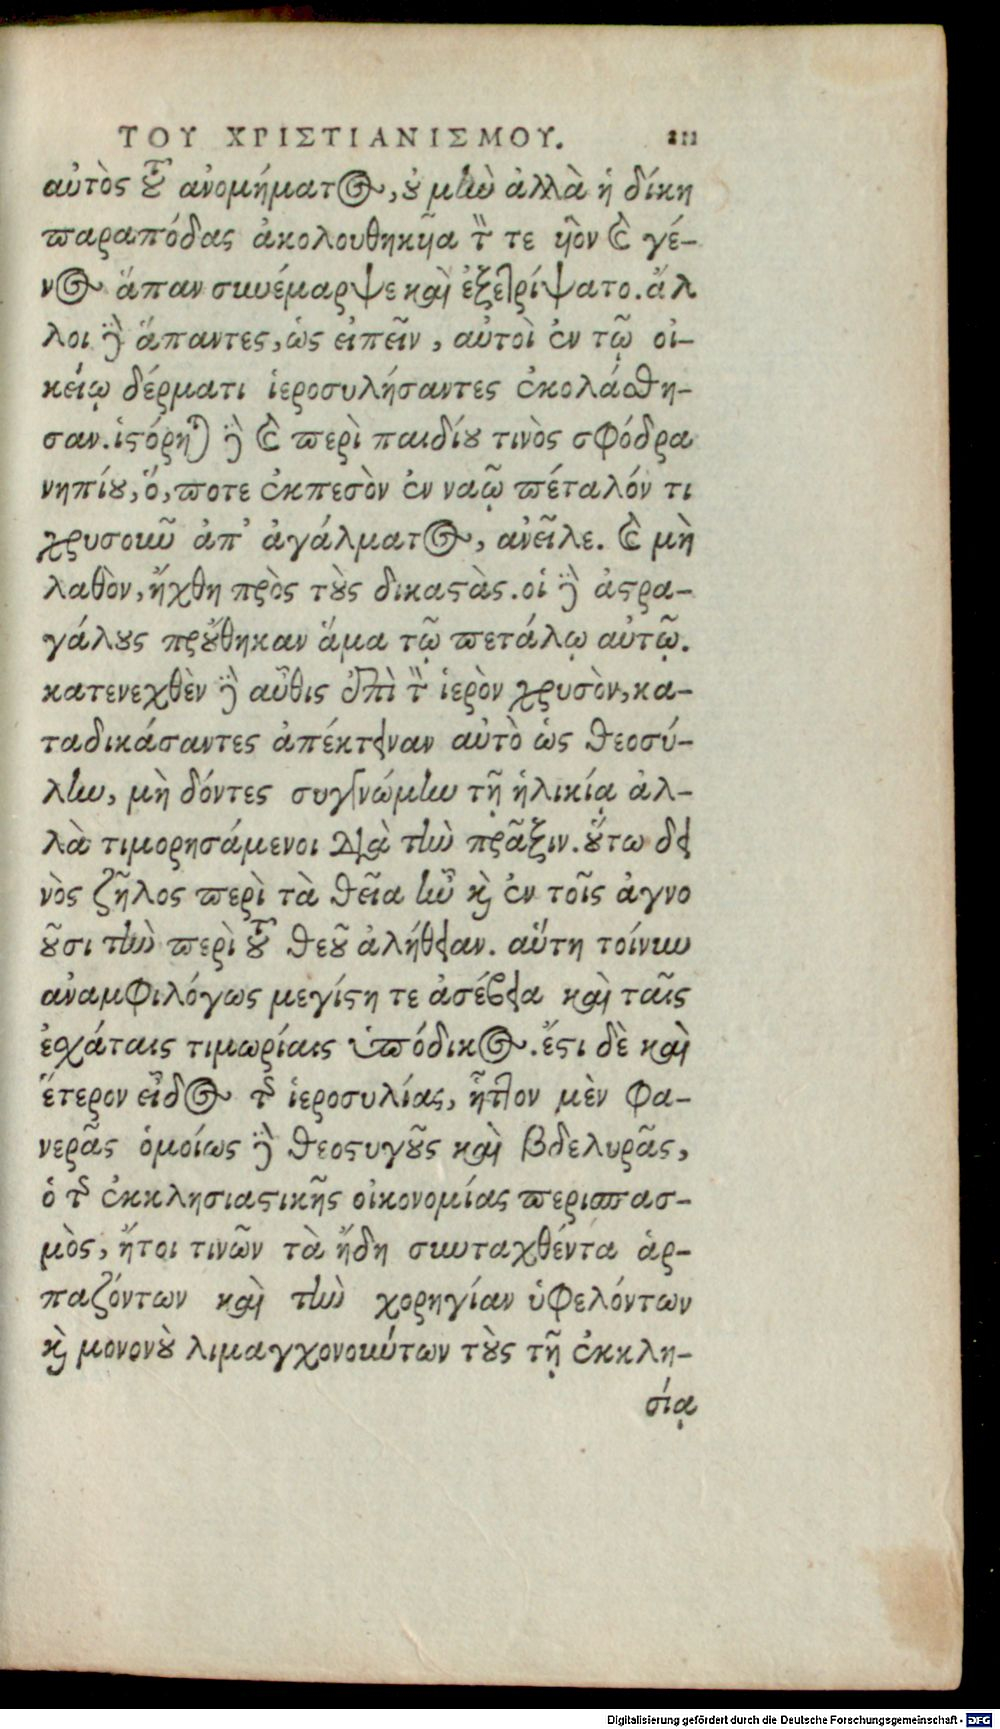 ΤΟΥ ΧΡΙΣΤΙΑΝΙΣΜΟΥ. 211
αὐτὸς τοῦ ἀνομήματος, οὐ μὴν ἀλλὰ ἡ δίκη
παραπόδας ἀκολουθηκῆα τόν τε ἡὸν καὶ γέ-
νος ἅπαν συνέμαρψε καὶ ἐξετρίψατο. ἄλ
λοι δὲ ἅπαντες, ὡς εἰπεῖν, αὐτοὶ ἐν τῷ οἰ-
κείῳ δέρματι ἱεροσυλήσαντες ἐκολάσθη-
σαν. ἱστόρηται δὲ καὶ περὶ παιδίου τινὸς σφόδρα
νηπίου, ὅ, ποτε ἐκπεσὸν ἐν ναῷ πέταλόν τι
χρυσοῦν ἀπ' ἀγάλματος, ἀνεῖλε. καὶ μὴ
λαθὸν, ἤχθη πρὸς τοὺς δικαστὰς. οἱ δὲ ἀστρα-
γάλους προὔθηκαν ἅμα τῷ πετάλῳ αὐτῷ.
κατενεχθὲν δὲ αὖθις ἐπὶ τὸν ἱερὸν χρυσὸν, κα-
ταδικάσαντες ἀπέκτειναν αὐτὸ ὡς θεοσύ-
λην, μὴ δόντες συγγνώμην τῇ ἡλικίᾳ ἀλ-
λὰ τιμορησάμενοι διὰ τὴν πρᾶξιν. οὕτω δει
νὸς ζῆλος περὶ τὰ θεῖα ἦν καὶ ἐν τοῖς ἀγνο
οῦσι τὴν περὶ τοῦ θεοῦ ἀλήθειαν. αὕτη τοίνυν
ἀναμφιλόγως μεγίστη τε ἀσέβεια καὶ ταῖς
ἐσχάταις τιμωρίαις ὑπόδικος. ἔστι δὲ καὶ
ἕτερον εἶδος τῆς ἱεροσυλίας, ἧττον μὲν φα-
νερᾶς ὁμοίως δὲ θεοστυγοῦς καὶ βδελυρᾶς,
ὁ τῆς ἐκκλησιαστικῆς οἰκονομίας περισπασ-
μὸς, ἤτοι τινῶν τὰ ἤδη συνταχθέντα ἁρ-
παζόντων καὶ τὴν χορηγίαν ὑφελόντων
καὶ μονονοὺ λιμαγχονούντων τοὺς τῇ ἐκκλη-
σίᾳ
Digitalisierung gefördert durch die Deutsche Forschungsgemeinschaft - DFG